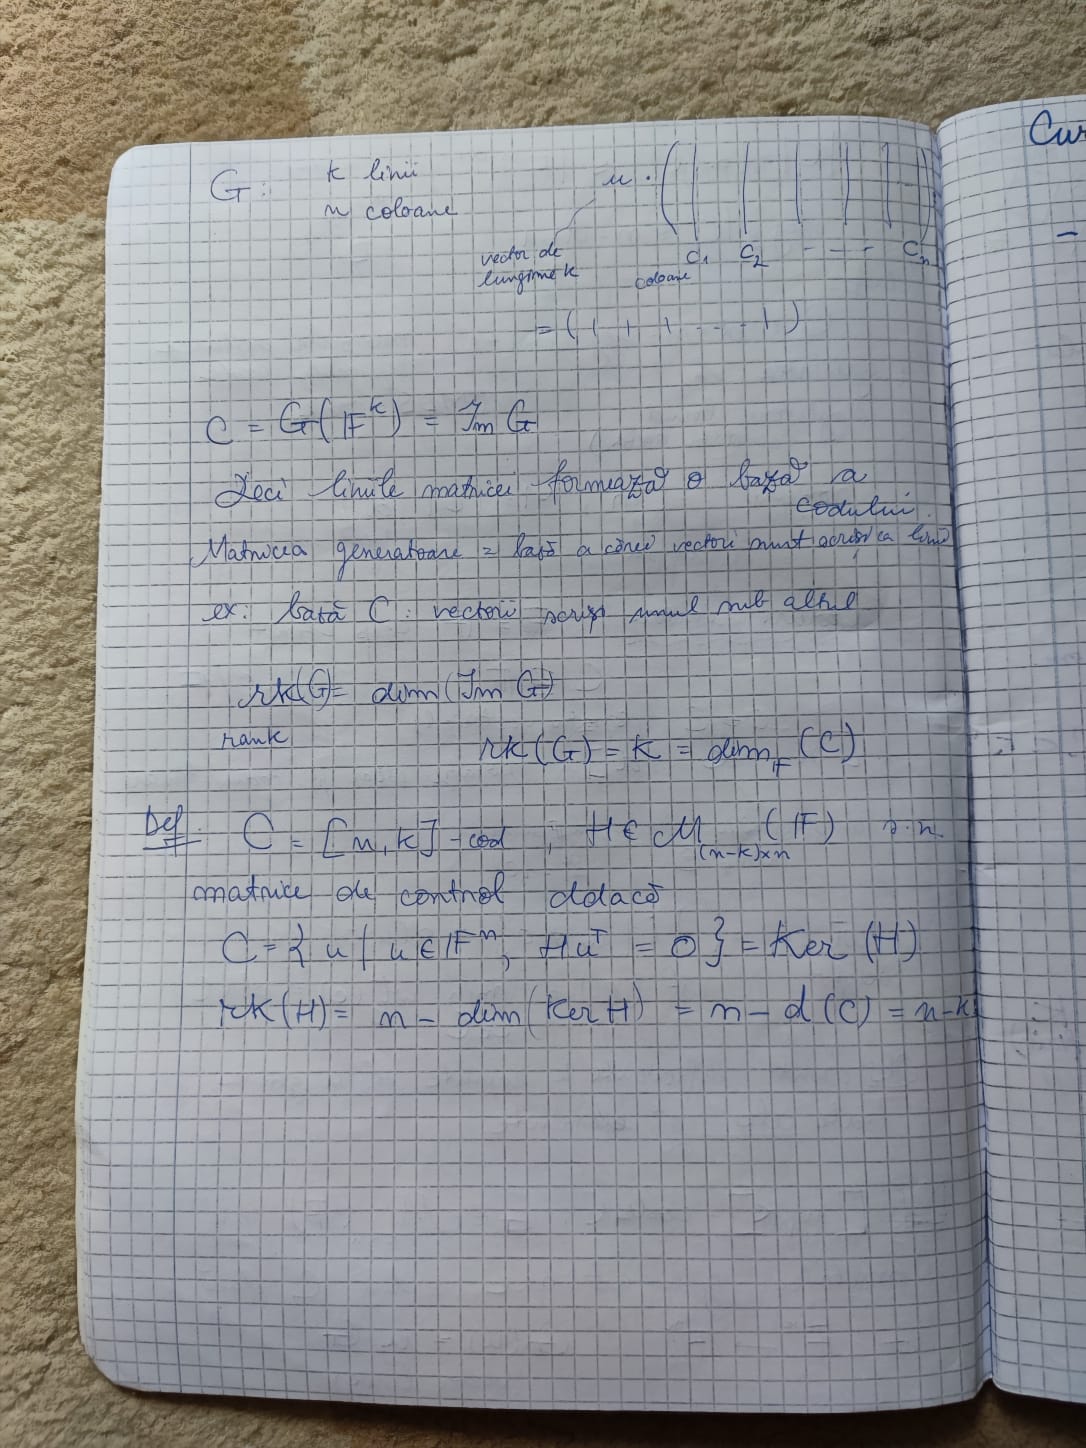 G: k linii
n coloane
u · ( | | | | | )
c₁ c₂ - - - cₙ
vector de
lungime k
coloane
= ( | + + - - + )
C = G(𝔽ᵏ) = Im G
Deci liniile matricei formează o bază a
codului.
Matricea generatoare = bază a cărei vectori sunt scriși ca linii
ex: bază C: vectorii scriși unul sub altul
rk(G) = dim(Im G)
rank
rk(G) = k = dim_𝔽 (C)
Def. C = [n, k] - cod ; H ∈ M₍ₙ₋ₖ₎ₓₙ (𝔽) s.n.
matrice de control ddacă
C = { u | u ∈ 𝔽ⁿ, Huᵀ = 0 } = Ker (H)
rk(H) = n - dim(Ker H) = n - d(C) = n-k
Cur
-